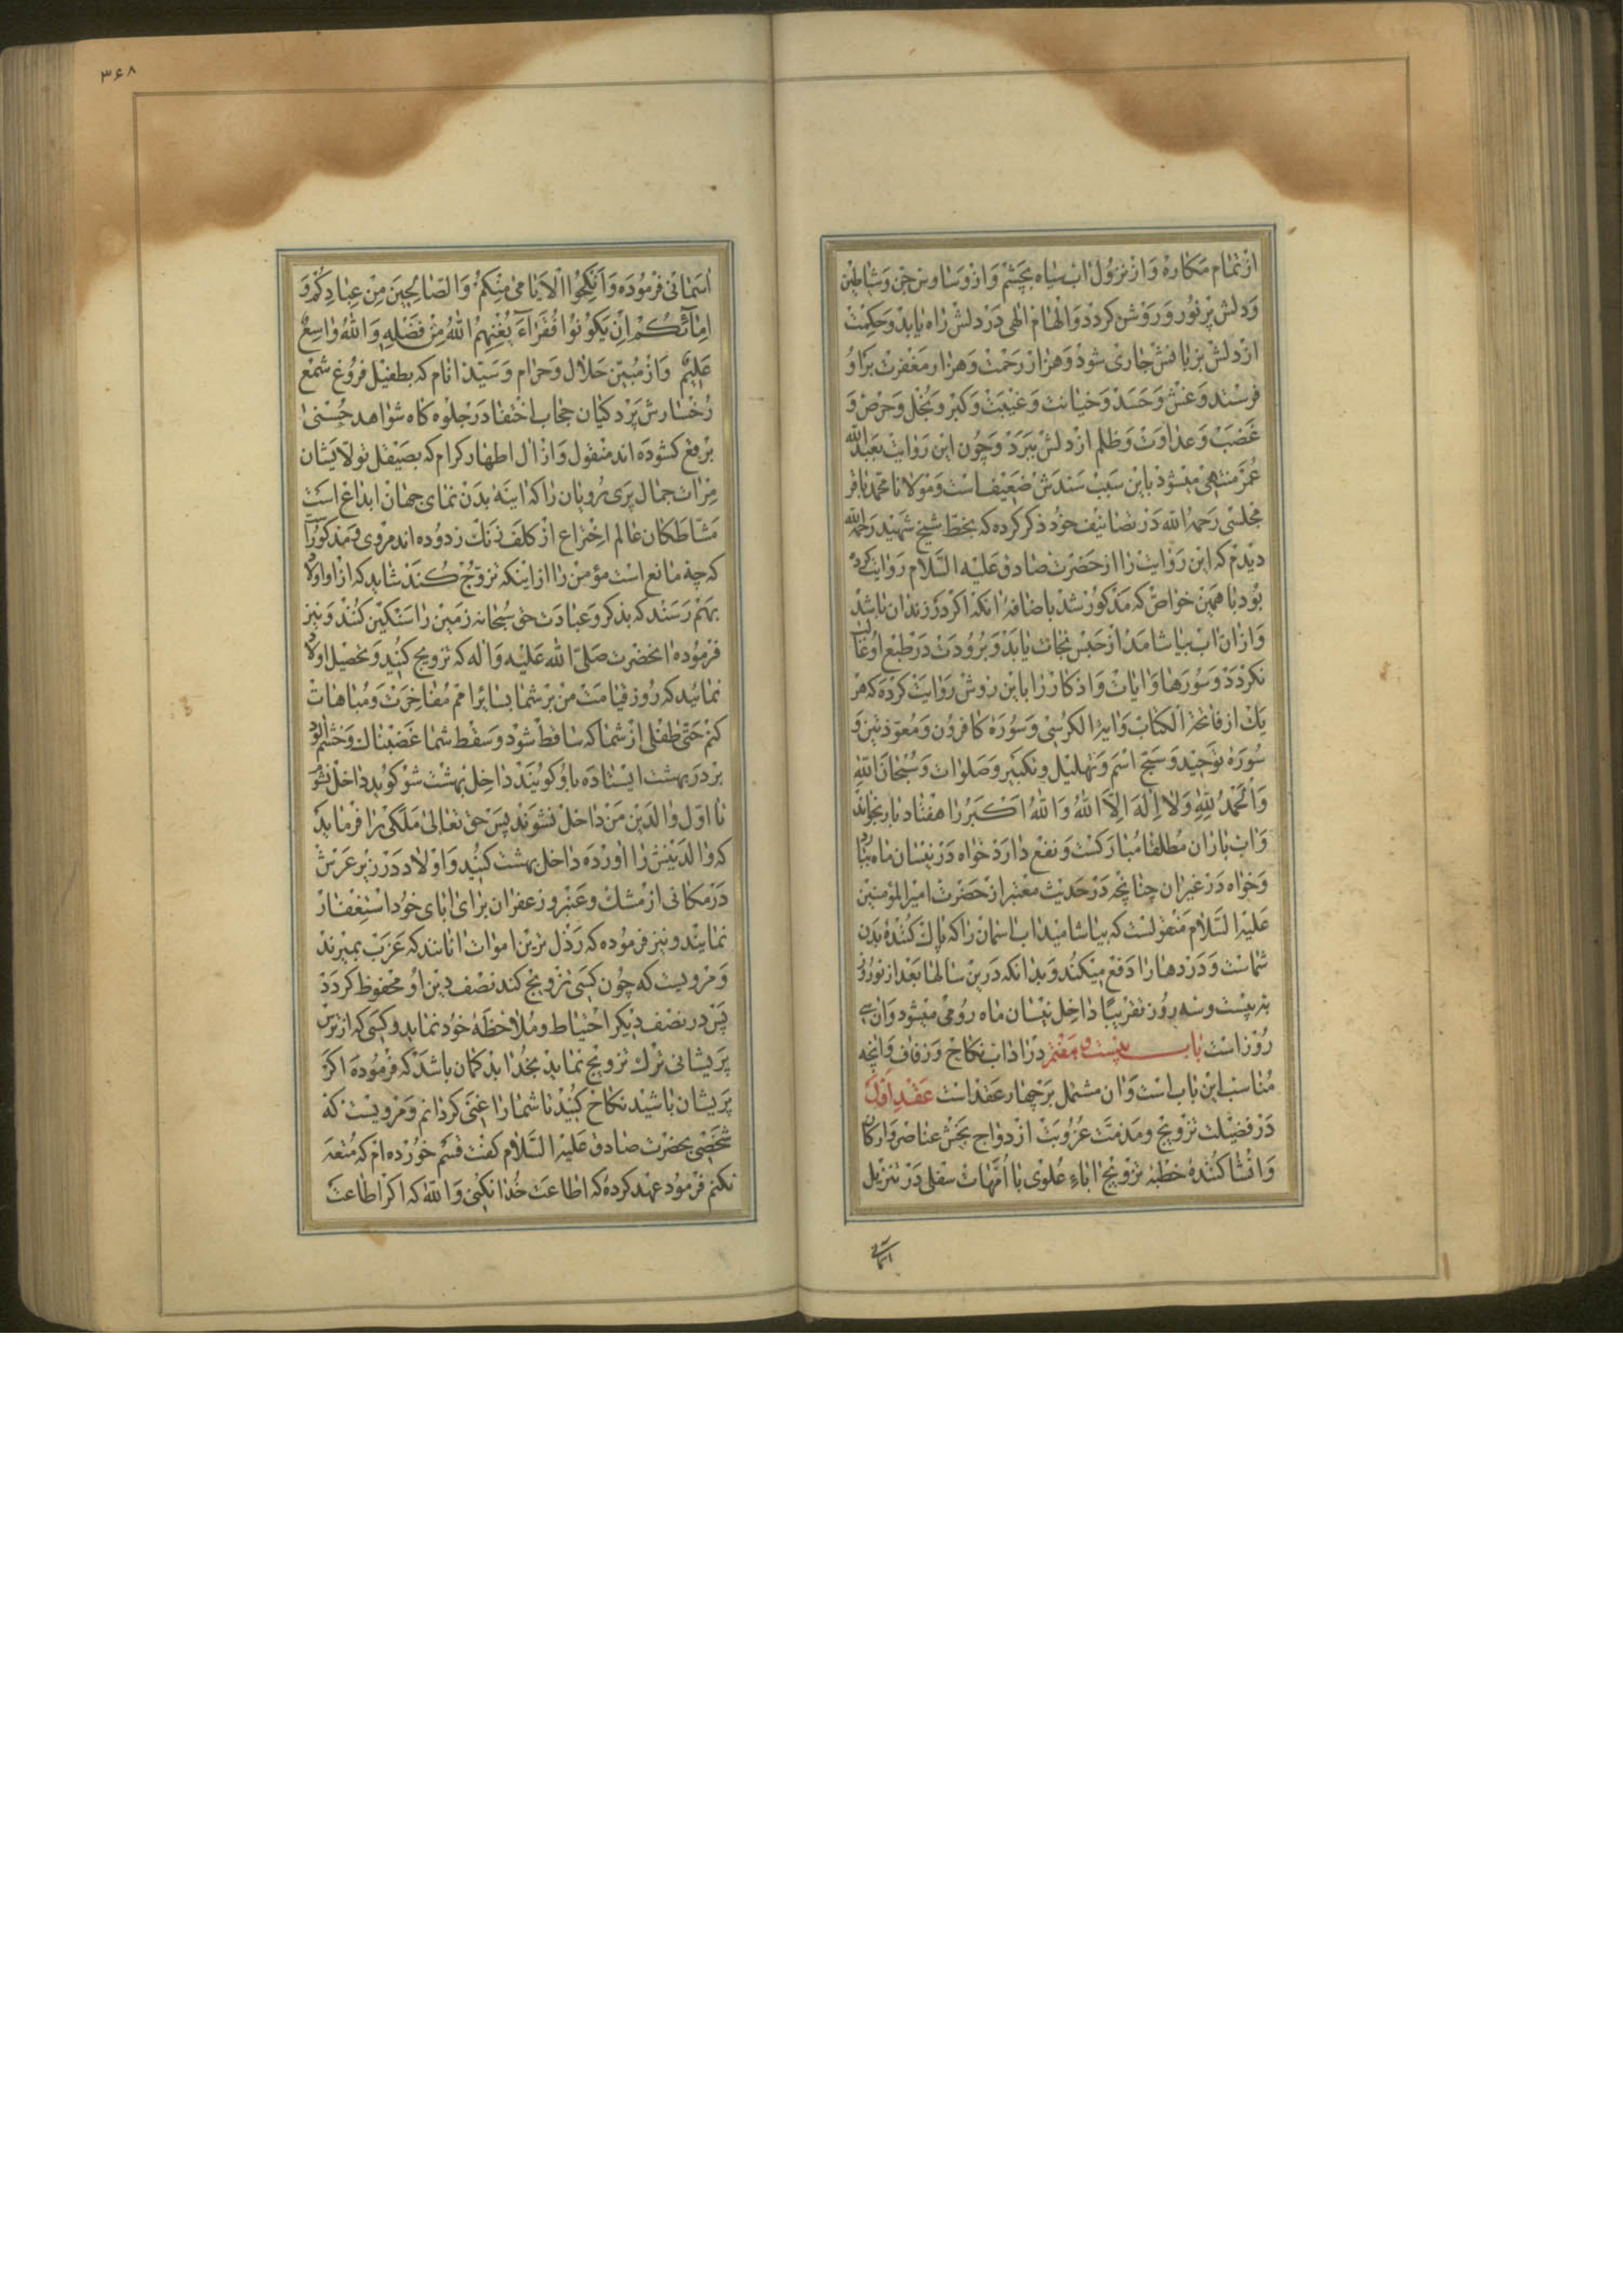 از تمام مکاره و از نزول اب سیاه بچشم و از وساوس جن و شیاطین
و دلش پر نور و روشن کردد و الهام الهی در دلش راه یابد و حکمت
از دلش بزبانش جاری شود و هزار رحمت و هزار مغفرت برای او
فرستند و غش و حسد و خیانت و غیبت و کبر و بخل و حرص و
غضب و عداوت و ظلم از دلش ببرد و چون این روایت بعبدالله
عمر منتهی میشود باین سبب سندش ضعیف است و مولانا محمد باقر
مجلسی رحمه الله در تصانیف خود ذکر کرده که بخط شیخ شهید رحمه الله
دیدم که این روایت را از حضرت صادق علیه السلام روایت کرده
بود با همین خواص که مذکور شد باضافهٔ انکه اکر در زندان باشد
و ازان اب بیاشامد از حبس نجات یابد و برودت در طبع او غالب
نکردد و سورها و ایات و اذکار را باین روش روایت کرده که هر
یک از فاتحة الکتاب و ایة الکرسی و سوره کافرون و معوذتین و
سورهٔ توحید و سبح اسم و تهلیل و تکبیر و صلوات و سبحان الله
و الحمد لله ولا اله الا الله والله اکبر را هفتاد بار بخواند
و اب باران مطلقا مبارکست و نفع دارد خواه در نیسان ماه ببارد
و خواه در غیر ان چنانچه در حدیث معتبر از حضرت امیر المؤمنین
علیه السلام منقولست که بیاشامید اب اسمان را که پاک کنندهٔ بدن
شماست و دردها را دفع میکند و بدانکه درین سالها بعد از نوروز
به بیست و سه روز تقریبًا داخل نیسان ماه رومی میشود و ان سی
روز است باب بیست و هفتم در اداب نکاح و زفاف و انچه
مناسب این باب است و ان مشتمل بر چهار عقد است عقد اول
در فضیلت تزویج و مذمت عزوبت ازدواج بخش عناصر و ارکان
و انشا کنندهٔ خطبه تزویج اباء علوی با امهات سفلی در تنزیل
اسمانی
۳۶۸
اسمانی فرموده وَاَنْکِحُوا الْاَیَامٰی مِنْکُمْ وَالصَّالِحِینَ مِنْ عِبَادِکُمْ وَ
اِمَآئِکُمْ اِنْ یَکُونُوا فُقَرَآءَ یُغْنِهِمُ اللهُ مِنْ فَضْلِهِ وَاللهُ وَاسِعٌ
عَلِیمٌ و از مبین حلال و حرام و سید انام که بطفیل فروغ شمع
رخسارش پردکیان حجاب اختفا در جلوه کاه شواهد حسنی
برقع کشوده اند منقول و از ال اطهار کرام که بصیقل تولایشان
مرات جمال پری رویان را که اینهٔ بدن نمای جهان ابداع است
مشاطکان عالم اختراع از کلف زنک زدوده اند مروی و مذکور
که چه مانع است مؤمن را از اینکه تزویج کند شاید که از او اولاد
بهم رسند که بذکر و عبادت حق سبحانه زمین را سنکین کنند و نیز
فرموده انحضرت صلی الله علیه و اله که تزویج کنید و تحصیل اولاد
نمائید که روز قیامت من بر شما بسایر امم مفاخرت و مباهات
کنم حتی طفلی از شما که ساقط شود و سقط شما غضبناک و خشم الود
بر در بهشت ایستاده باو کویند داخل بهشت شو کوید داخل نشو
تا اول والدین من داخل نشوند پس حق تعالی ملکی را فرماید
که والدینش را اورده داخل بهشت کنید و اولاد در زیر عرش
در مکانی از مشک و عنبر و زعفران برای ابای خود استغفار
نمایند و نیز فرموده که رذل ترین اموات انانند که عزب بمیرند
و مرویست که چون کسی تزویج کند نصف دین او محفوظ کردد
پس در نصف دیکر احتیاط و ملاحظهٔ خود نماید و کسی که از ترس
پریشانی ترک تزویج نماید بخدا بد کمان باشد که فرموده اکر
پریشان باشید نکاح کنید تا شما را غنی کردانم و مرویست که
شخصی بحضرت صادق علیه السلام کفت قسم خورده ام که متعه
نکنم فرمود عهد کردهٔ که اطاعت خدا نکنی والله که اکر اطاعت